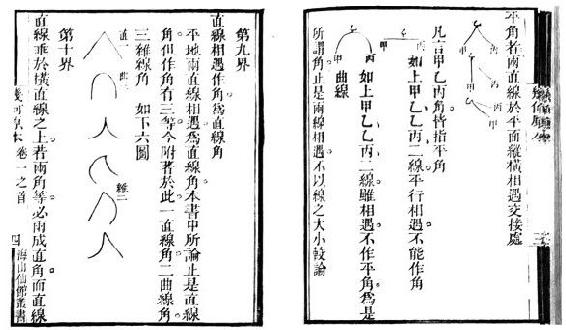 平角者兩直線於平面縱橫相遇交接處
丙
甲
丙
甲
丙
甲
凡言甲乙丙角皆指平角
丙
甲
如上甲乙乙丙二線平行相遇不能作角
丙
甲
如上甲乙乙丙二線雖相遇不作平角為是
曲線
所謂角止是兩線相遇不以線之大小較論
第九界
直線相遇作角為直線角
平地兩直線相遇為直線角本書中所論止是直線
角但作角有三等今附著於此一直線角二曲線角
三雜線角 如下六圖
直一
第十界
直線垂於橫直線之上若兩角等必兩成直角而直線
幾何原本 卷一之首 四 海山仙館叢書